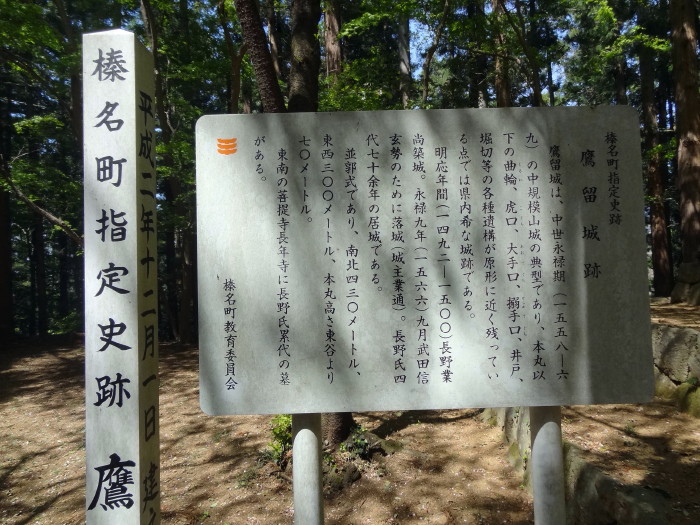 榛名町指定史跡 鷹
平成二年十二月一日 建
榛名町指定史跡
鷹留城跡
鷹留城は、中世永禄期（一五五八—六
九）の中規模山城の典型であり、本丸以
下の曲輪、虎口、大手口、搦手口、井戸、
堀切等の各種遺構が原形に近く残ってい
る点では県内希な城跡である。
明応年間（一四九二—一五〇〇）長野業
尚築城。永禄九年（一五六六）九月武田信
玄勢のために落城（城主業通）。長野氏四
代七十余年の居城である。
並郭式であり、南北四三〇メートル、
東西三〇〇メートル、本丸高さ東谷より
七〇メートル。
東南の菩提寺長年寺に長野氏累代の墓
がある。
榛名町教育委員会